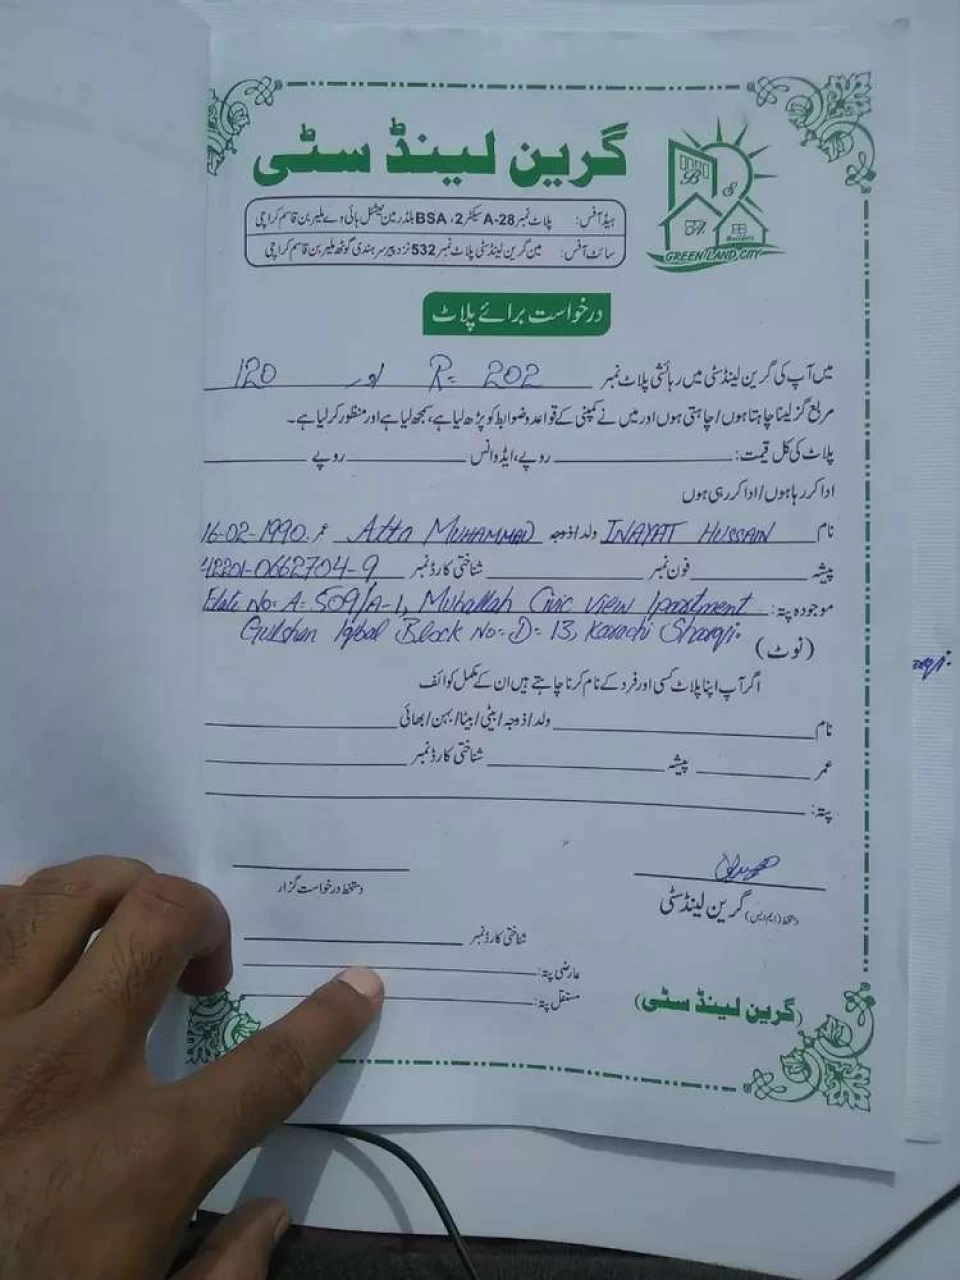 گرین لینڈ سٹی
B S
Builders
GREEN LAND CITY
ہیڈ آفس: پلاٹ نمبر A-28 سیکٹر 2، BSA بلڈرمین نیشنل ہائی وے ملیر بن قاسم کراچی
سائٹ آفس: مین گرین لینڈ سٹی پلاٹ نمبر 532 نزد پیر سرہندی گوٹھ ملیر بن قاسم کراچی
درخواست برائے پلاٹ
میں آپ کی گرین لینڈ سٹی میں رہائشی پلاٹ نمبر R= 202 اور 120
مربع گز لینا چاہتا ہوں/چاہتی ہوں اور میں نے کمپنی کے قواعد و ضوابط کو پڑھ لیا ہے، سمجھ لیا ہے اور منظور کر لیا ہے۔
پلاٹ کی کل قیمت: روپے، ایڈوانس روپے
ادا کر رہا ہوں/ادا کر رہی ہوں
نام INAYAT HUSSAIN ولد/زوجہ Atta MUHAMMAD عمر 16-02-1990
پیشہ فون نمبر شناختی کارڈ نمبر 42201-0662704-9
موجودہ پتہ: Flate No: A=509/A-1, Muhallah Civic View Apartment
Gulshan Iqbal Block No=D=13, Karachi Sharqi.
(نوٹ)
اگر آپ اپنا پلاٹ کسی اور فرد کے نام کرنا چاہتے ہیں ان کے مکمل کوائف
نام ولد/زوجہ/بیٹی/بیٹا/بہن/بھائی
عمر پیشہ شناختی کارڈ نمبر
پتہ:
دستخط (ایم ایس) گرین لینڈ سٹی
دستخط درخواست گزار
شناختی کارڈ نمبر
عارضی پتہ:
مستقل پتہ:
(گرین لینڈ سٹی)